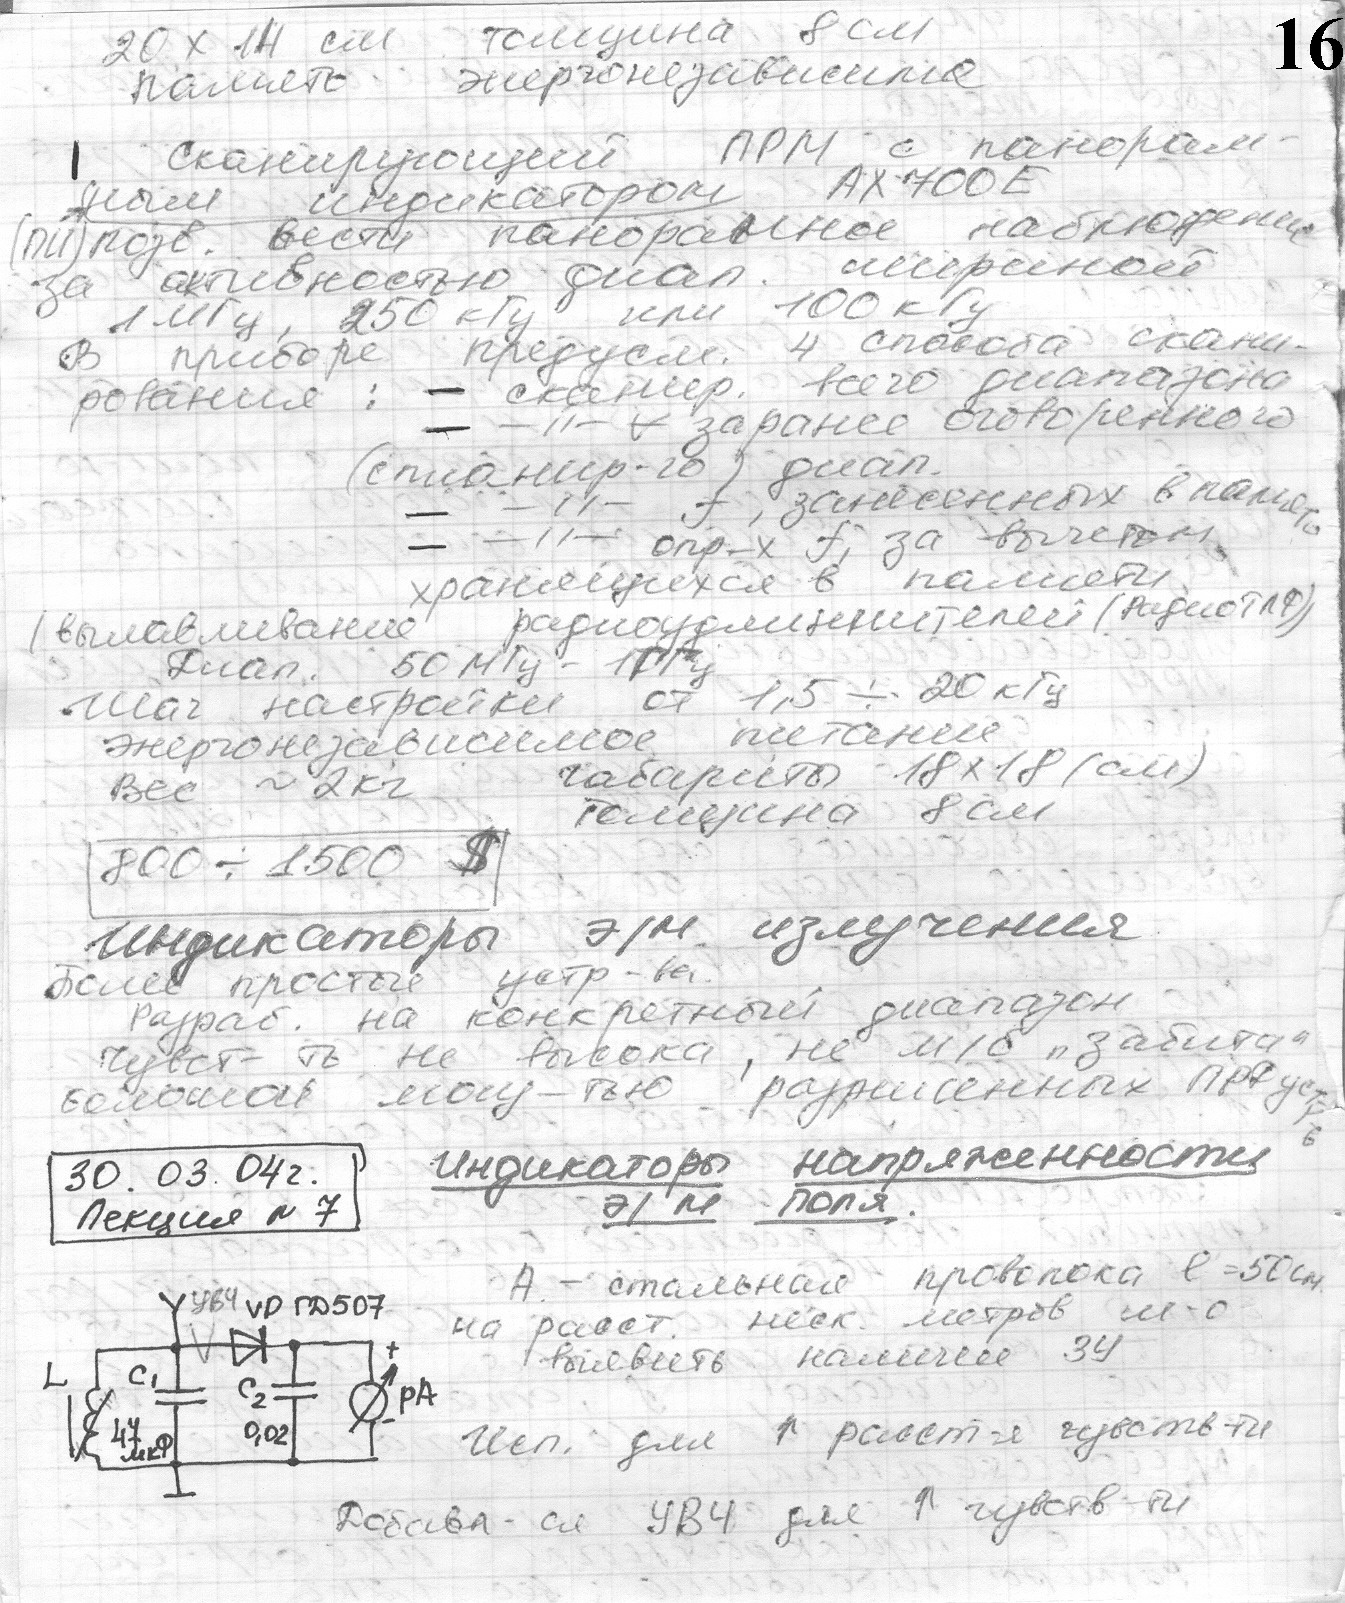 16
20 х 14 см толщина 8 см
Память энергонезависима
Сканирующий ПРМ с панорам-
ным индикатором AX700E
(ПИ) позв. вести панорамное наблюдение
за активностью диап. шириной
1 МГц, 250 кГц или 100 кГц
В приборе предусм. 4 способа скани-
рования : — сканир. всего диапазона
— –"– заранее оговоренного
(спланир-го) диап.
— –"– f, занесенных в память
— –"– опр-х f, за вычетом
хранящихся в памяти
(вылавливание радиоудлиннителей (радиоТЛФ)
Диап. 50 МГц - 1 ГГц
Шаг настройки от 1,5 ÷ 20 кГц
Энергонезависимое питание
Вес ~ 2кг габариты 18х18 (см)
толщина 8 см
800 ÷ 1500 $
Индикаторы э/м излучения
Более простые устр-ва.
Разраб. на конкретный диапазон
Чувст-ть не высока, не м/б "забита"
большой мощ-тью разрешенных ПРД устр-в
30. 03. 04г.
Лекция № 7
Индикаторы напряженности
э/м поля.
А - стальная проволока l = 50 см.
на расст. неск. метров м-о
выявить наличие ЗУ
УВЧ VD ГД507
L C1 C2 + pA -
47 мкФ 0,02
Исп. для ↑ расст-я чувств-ти
Добавл-ся УВЧ для ↑ чувств-ти